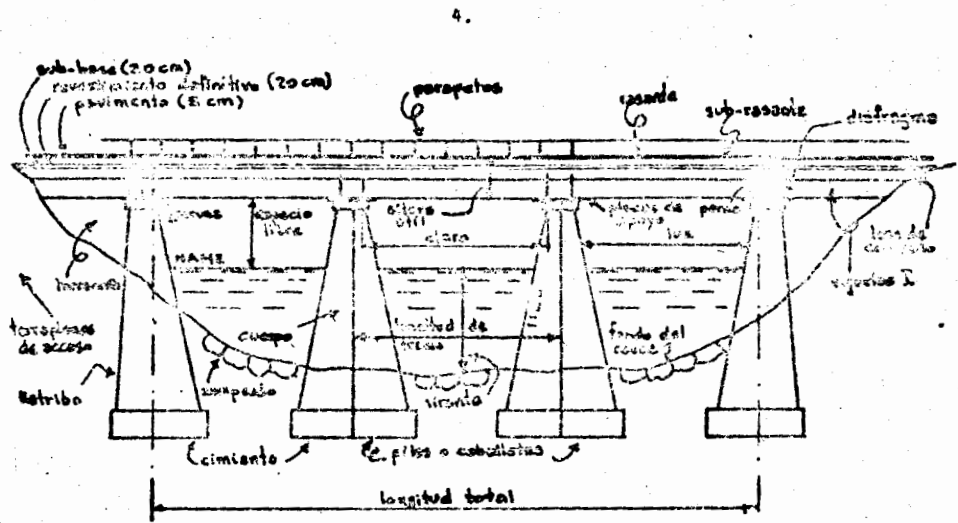 4.
sub-base (20 cm)
revestimiento definitivo (20 cm)
pavimento (8 cm)
parapetos
rasante
sub-rasante
diafragma
espacio
libre
altura
útil
claro
placas de
apoyo
luz
losa de
NAME
viguetas I
terraplenes
de acceso
cuerpo
longitud de
tramo
fondo del
cauce
Estribo
zampeado
tirante
cimiento
pilas o caballetes
longitud total